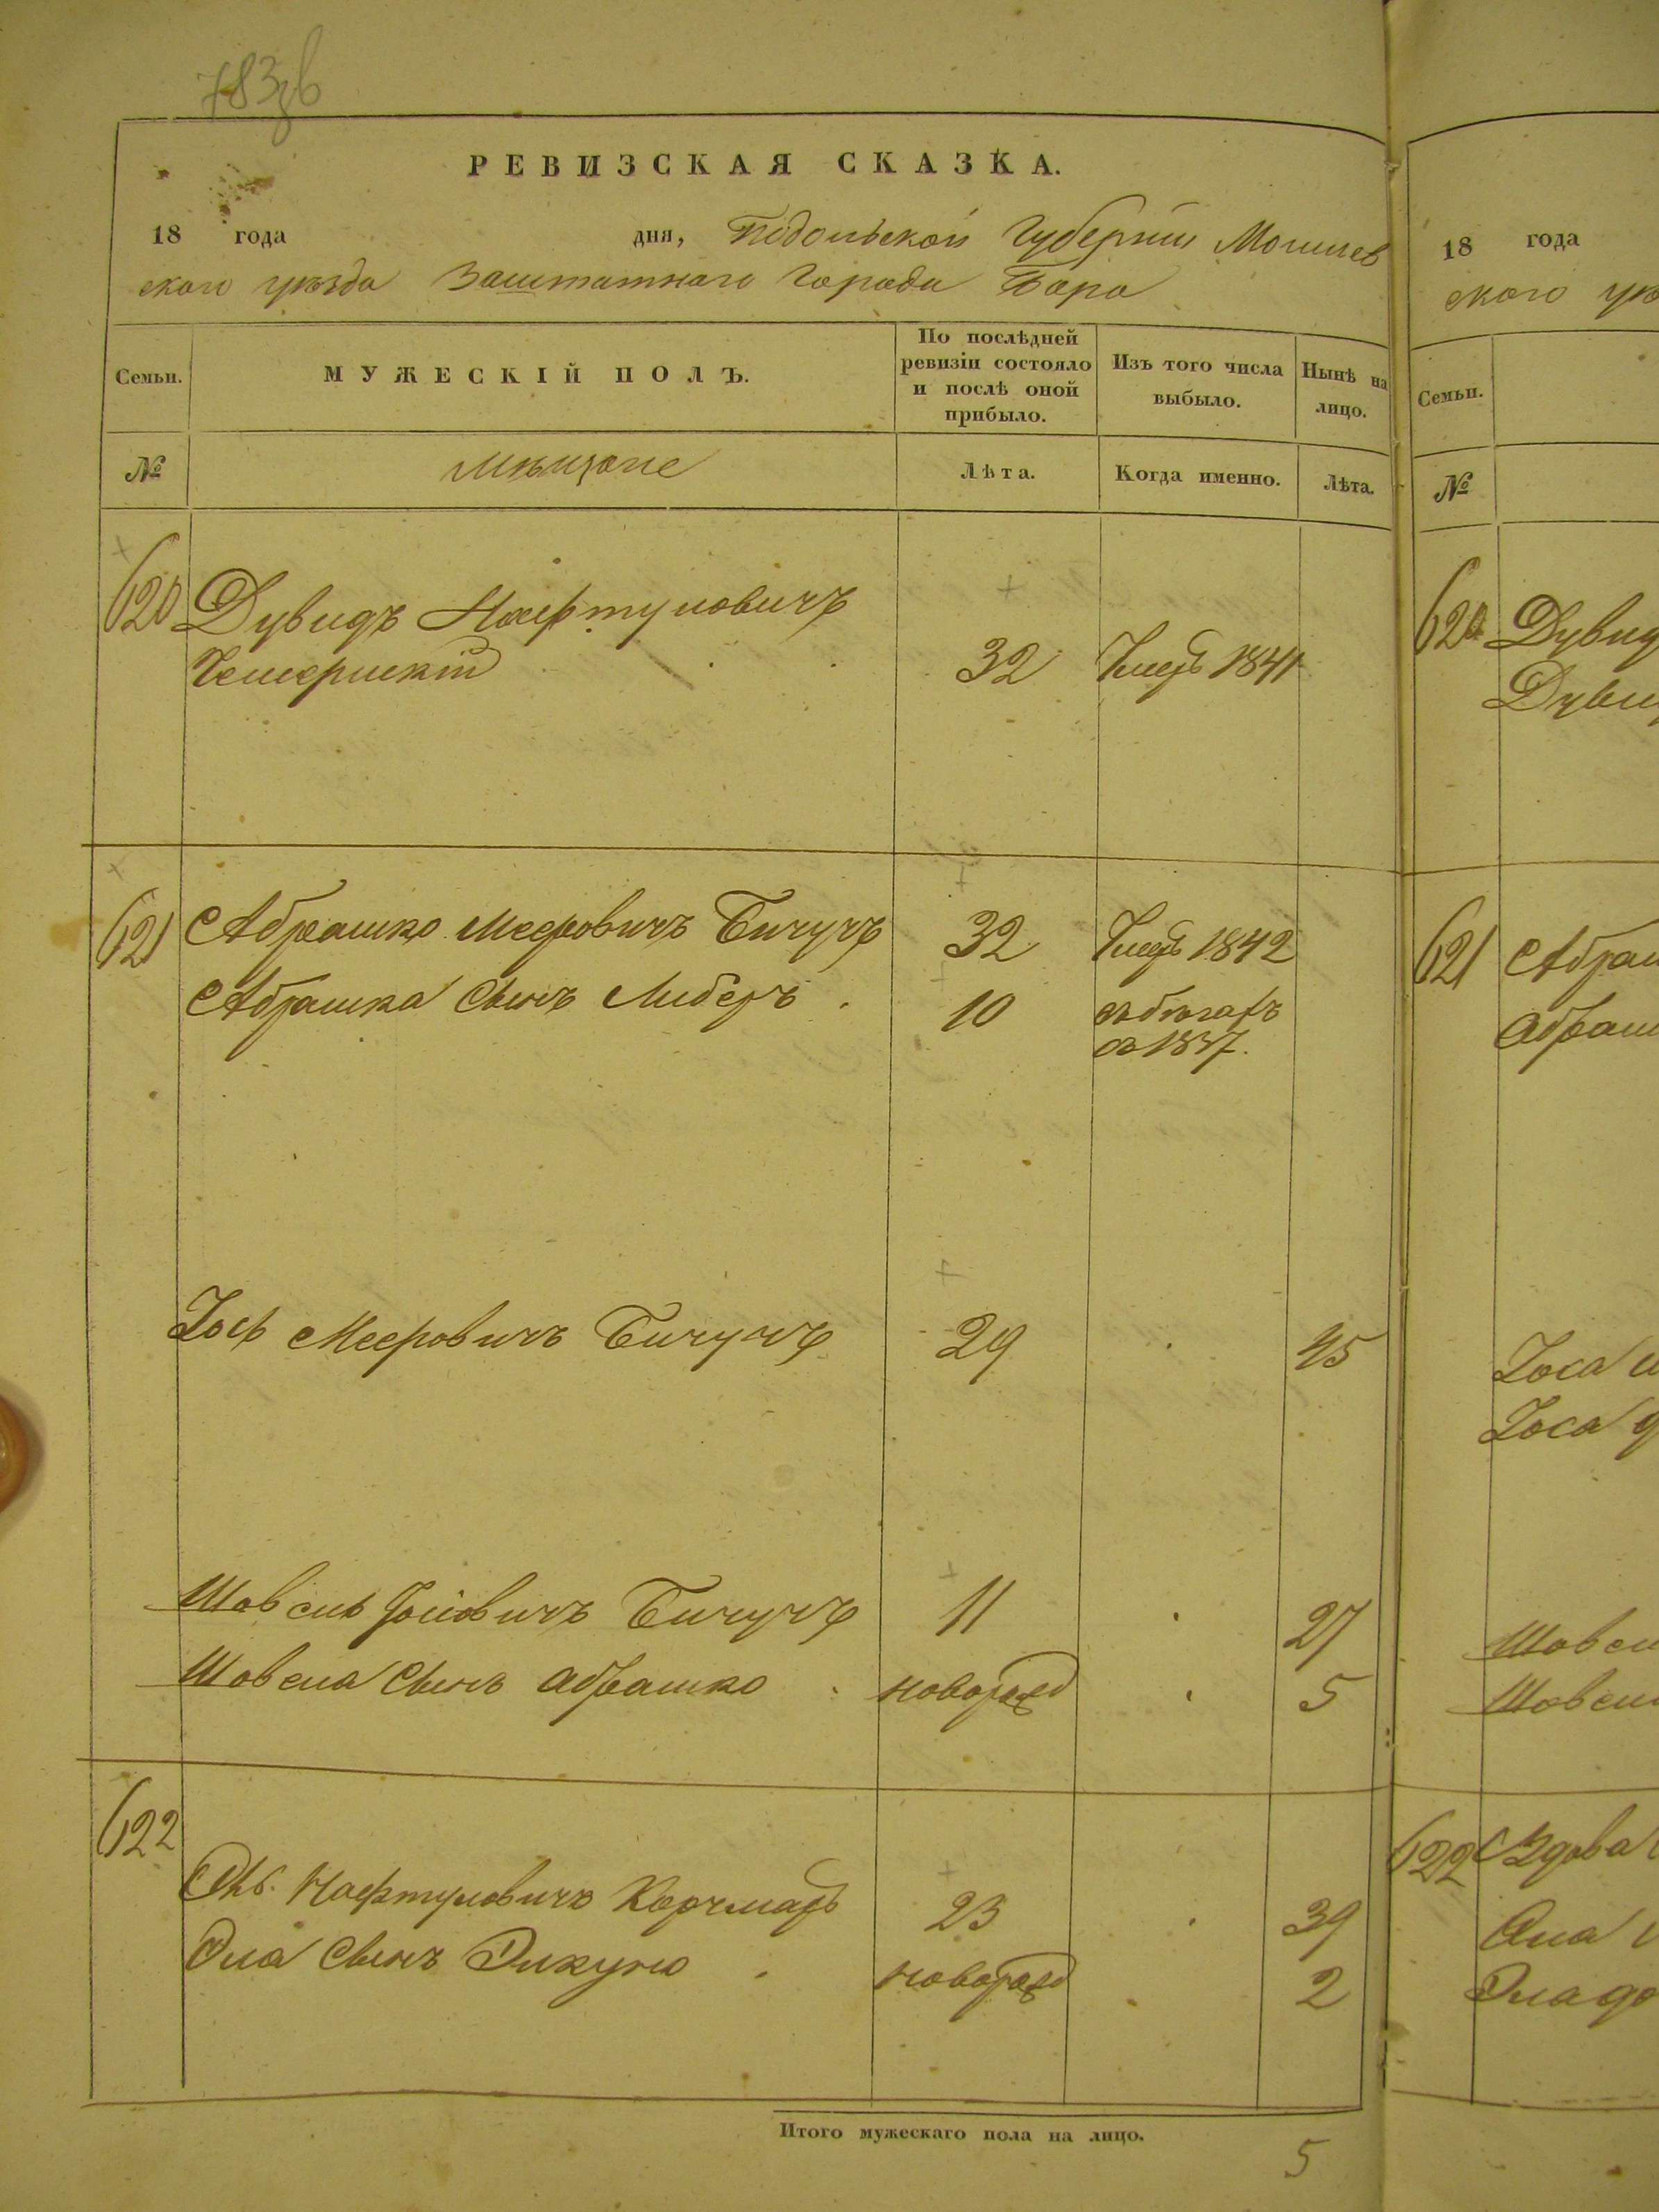 783зв
РЕВИЗСКАЯ СКАЗКА.
18 года дня, Подольской Губерніи Могилев
ского уѣзда Заштатнаго Города Бара
Семьи. МУЖЕСКІЙ ПОЛЪ. По послѣдней ревизіи состояло и послѣ оной прибыло. Изъ того числа выбыло. Нынѣ на лицо.
№ Мѣщане Лѣта. Когда именно. Лѣта.
620 Дувидъ Нафтуловичъ
Чемерискій 32 Умеръ 1841
621 Абрашко Мееровичъ Бичучъ 32 Умеръ 1842
Абрашка Сынъ Либеръ 10 въ бѣгахъ
съ 1837.
Іось Мееровичъ Бичучъ 29 45
Шовель Іосіовичъ Бичучъ 11 27
Шовеля Сынъ Абрашко новорожд 5
622
Нафтуловичъ Корчмаръ 23 39
Эла Сынъ Элкуно новорожд 2
Итого мужескаго пола на лицо.
5
18 года
ского уѣ
Семьи.
№
620 Дувид
Дувид
621 Абраш
Абраш
Іоса
Іоса
Шовел
Шовел
622 Здова
Эла
Эла до